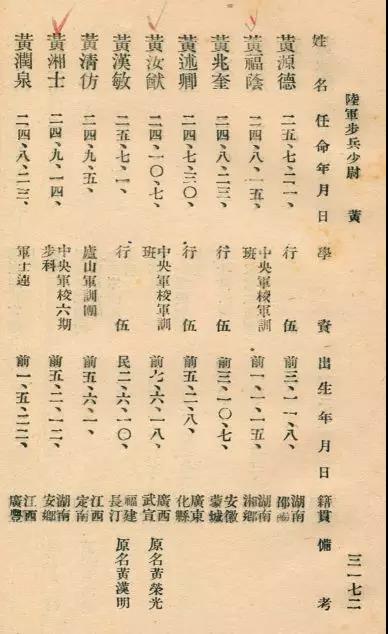 陸軍步兵少尉　黃　三一七二
姓名　任命年月日　學資　出生年月日　籍貫　備考
黃源德　二五、七、二一、　行伍　前三、一一、八、　湖南邵陽
黃福蔭　二四、八、一五、　中央軍校軍訓班　前一、一、一五、　湖南湘鄉
黃兆奎　二四、八、二三、　行伍　前三、一〇、七、　安徽蒙城
黃述卿　二四、七、三〇、　行伍　前五、二、八、　廣東化縣
黃汝猷　二四、一〇、七、　中央軍校軍訓班　前七、六、一八、　廣西武宣　原名黃榮光
黃漢敏　二五、七、一、　行伍　民二、六、一〇、　福建長汀　原名黃漢明
黃清仿　二四、九、五、　廬山軍訓團　前五、六、一、　江西定南
黃湘士　二四、九、一四、　中央軍校六期步科　前五、二、一二、　湖南安鄉
黃潤泉　二四、八、二三、　軍士遠　前一、五、二二、　江西廣豐